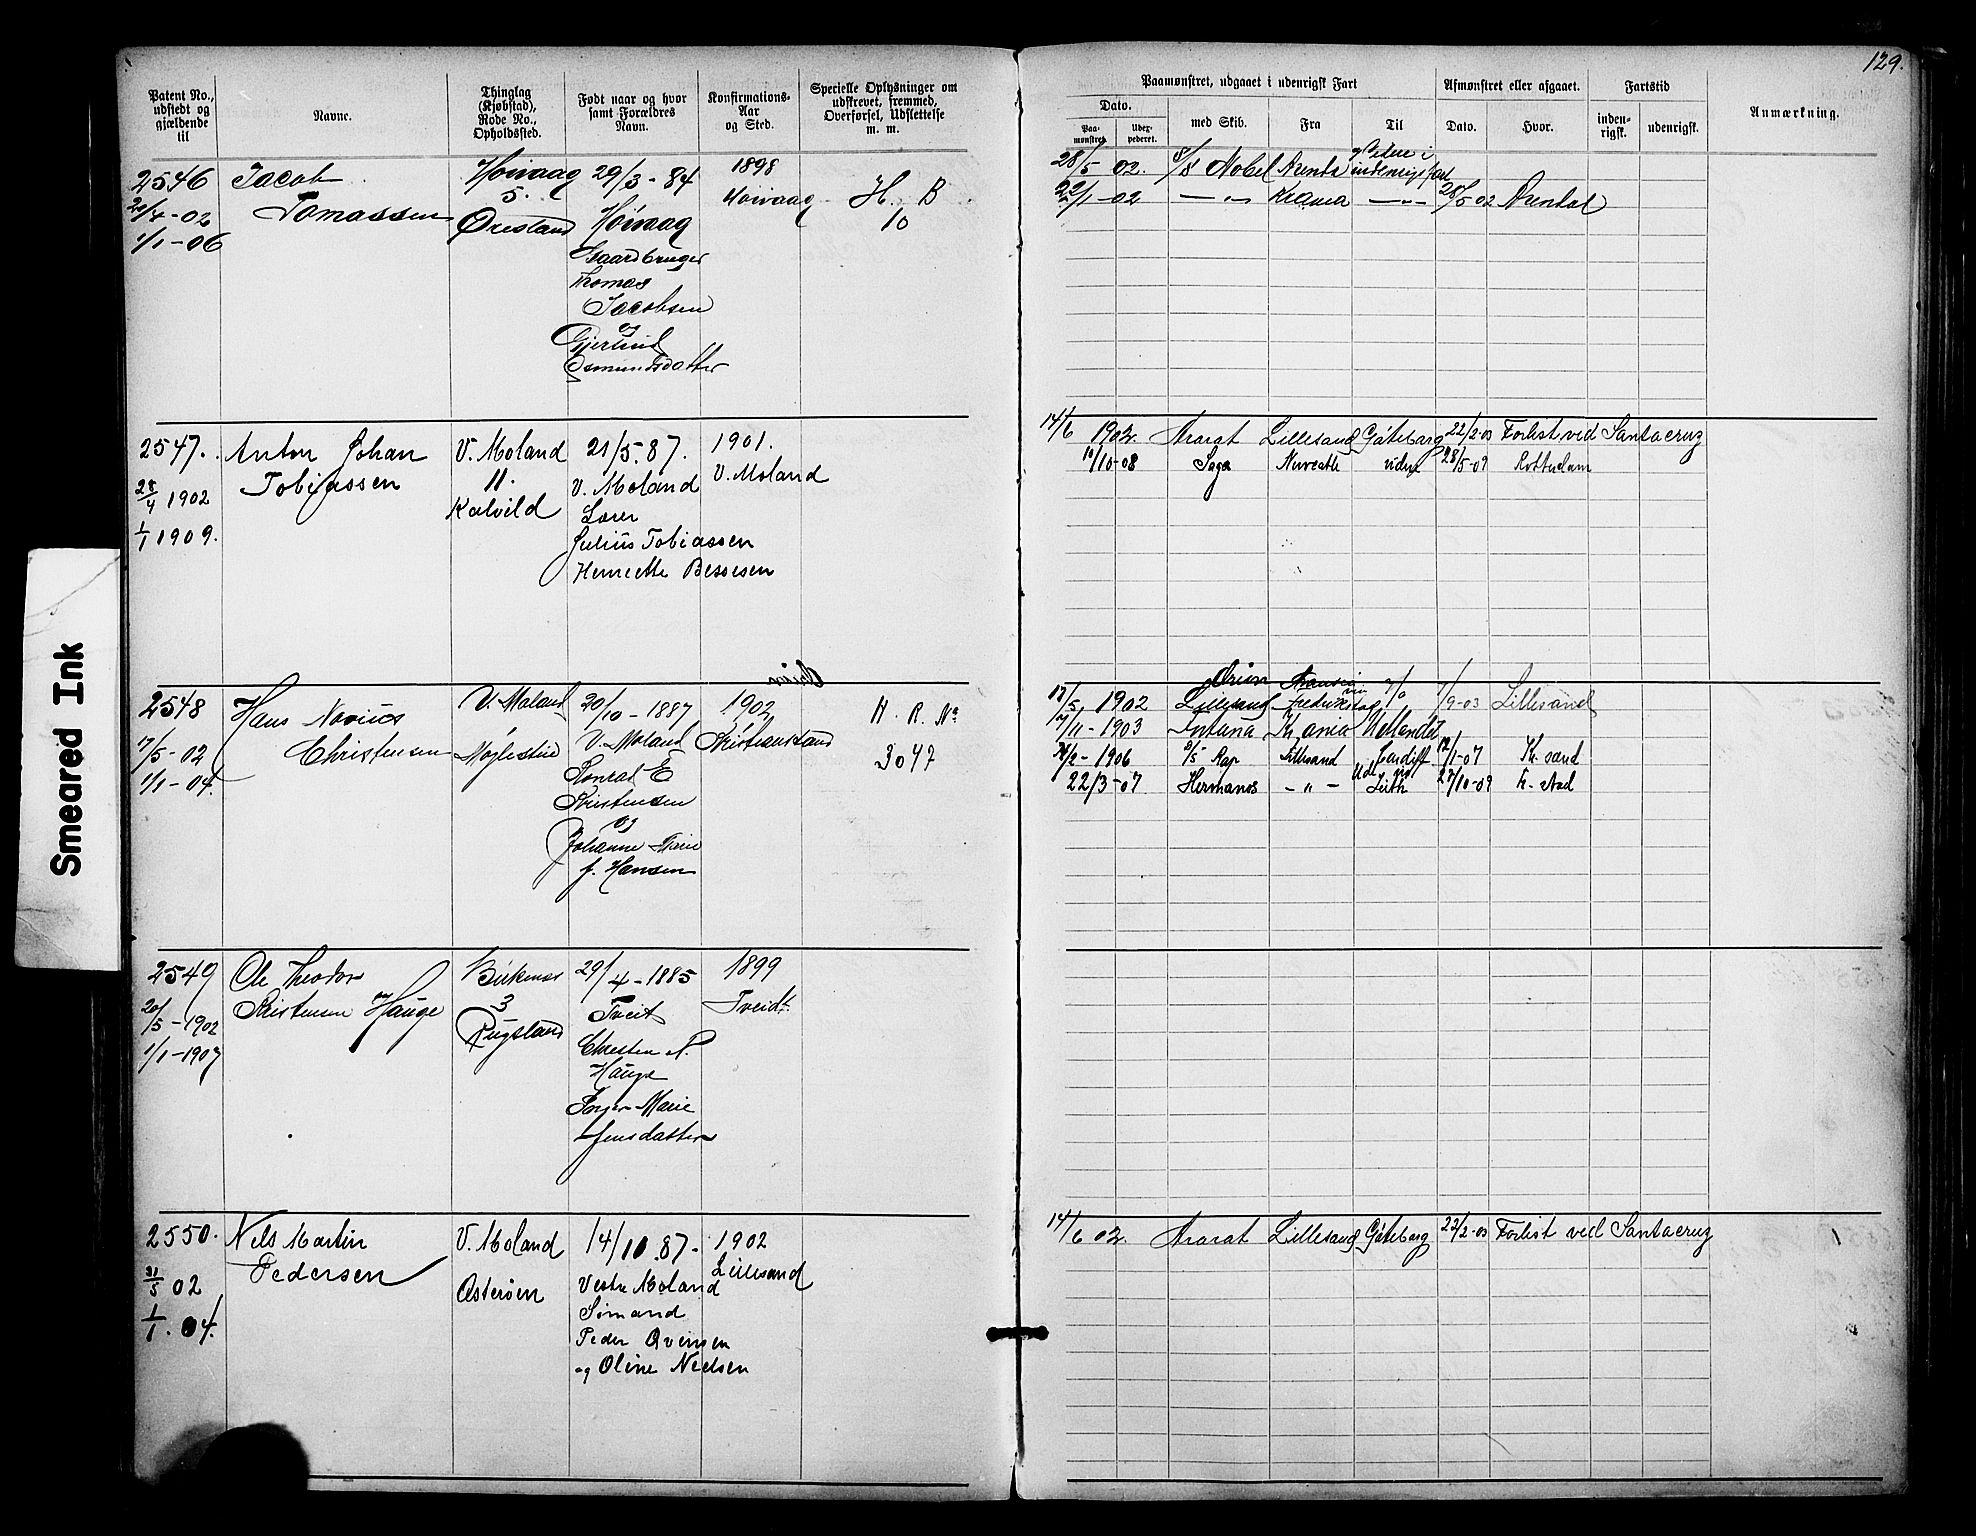 129.
Patent No., udstedt og gjældende til
Navne.
Thinglag (Kjøbstad), Rode No., Opholdssted.
Født naar og hvor samt Forældres Navn.
Konfirmations-Aar og Sted.
Specielle Oplysninger om udskrevet, fremmed, Overførsel, Udslettelse m. m.
Paamønstret, udgaaet i udenrigsk Fart
Afmønstret eller afgaaet.
Fartstid
Anmærkning.
Dato.
Paa-mønstret.
Udex-pederet.
med Skib.
Fra
Til
Dato.
Hvor.
inden-rigsk.
udenrigsk.
2546
Jacob
Tomassen
1/1-06
Høivaag
5.
Ørestand
29/3-84
Høivaag
Gaardbruger
Thomas
Jacobsen
og
Gjerlud
Osmundsdatter
1898
Høivaag
H. B
10
28/5 02. Nobel Arendal indenrigsfart
22/1-02 — " — — " — 28/5 02 Arendal
2547.
28/4 1902
1/1 1909.
Anton Johan
Tobiassen
V. Moland
11.
Kalvild
21/5.87.
V. Moland
Lærer
Julius Tobiassen
Henriette Bessesen
1901.
V. Moland
14/6 1902. Ararat Lillesand Gøteborg 22/2-03 Forlist ved Santacruz
10/10-08 Saga videre 28/5-09 Rotterdam
Orion
2548
17/5-02
1/1-04.
Hans Navius
Christensen
V. Moland
Møglestue
20/10-1887
V. Moland
Konrad E
Kristensen
og
Johanne Marie
f. Hansen
1902
Kristianssand
H. R. No
3047
Orion
5, 1902 Lillesand Fredrikstad 1/9-03 Lillesand
17/11-1903 Fortuna Kr.ania
2-1906 Rap Lillesand Cardiff 12/1-07 Kr. sand
22/3-07 Hermanos — " — Leith 10-09 Fr. stad
2549
20/5-1902
1/1-1907
Ole Theodor
Kristensen Hauge
Birkenæs
3
Rugsland
29/4-1885
Tveit
Christen N.
Hauge
Marie
Jensdatter
1899
Tveidt.
2550.
31/5 02
1/1. 04.
Nels Martin
Pedersen
V. Moland
Osterøen
14/10.87.
Vestre Moland
Sømand
Peder Øvensen
og Oline Nielsen
1902
Lillesand
14/6 02. Ararat Lillesand Gøteborg 22/2-03 Forlist ved Santacruz
Smeared Ink